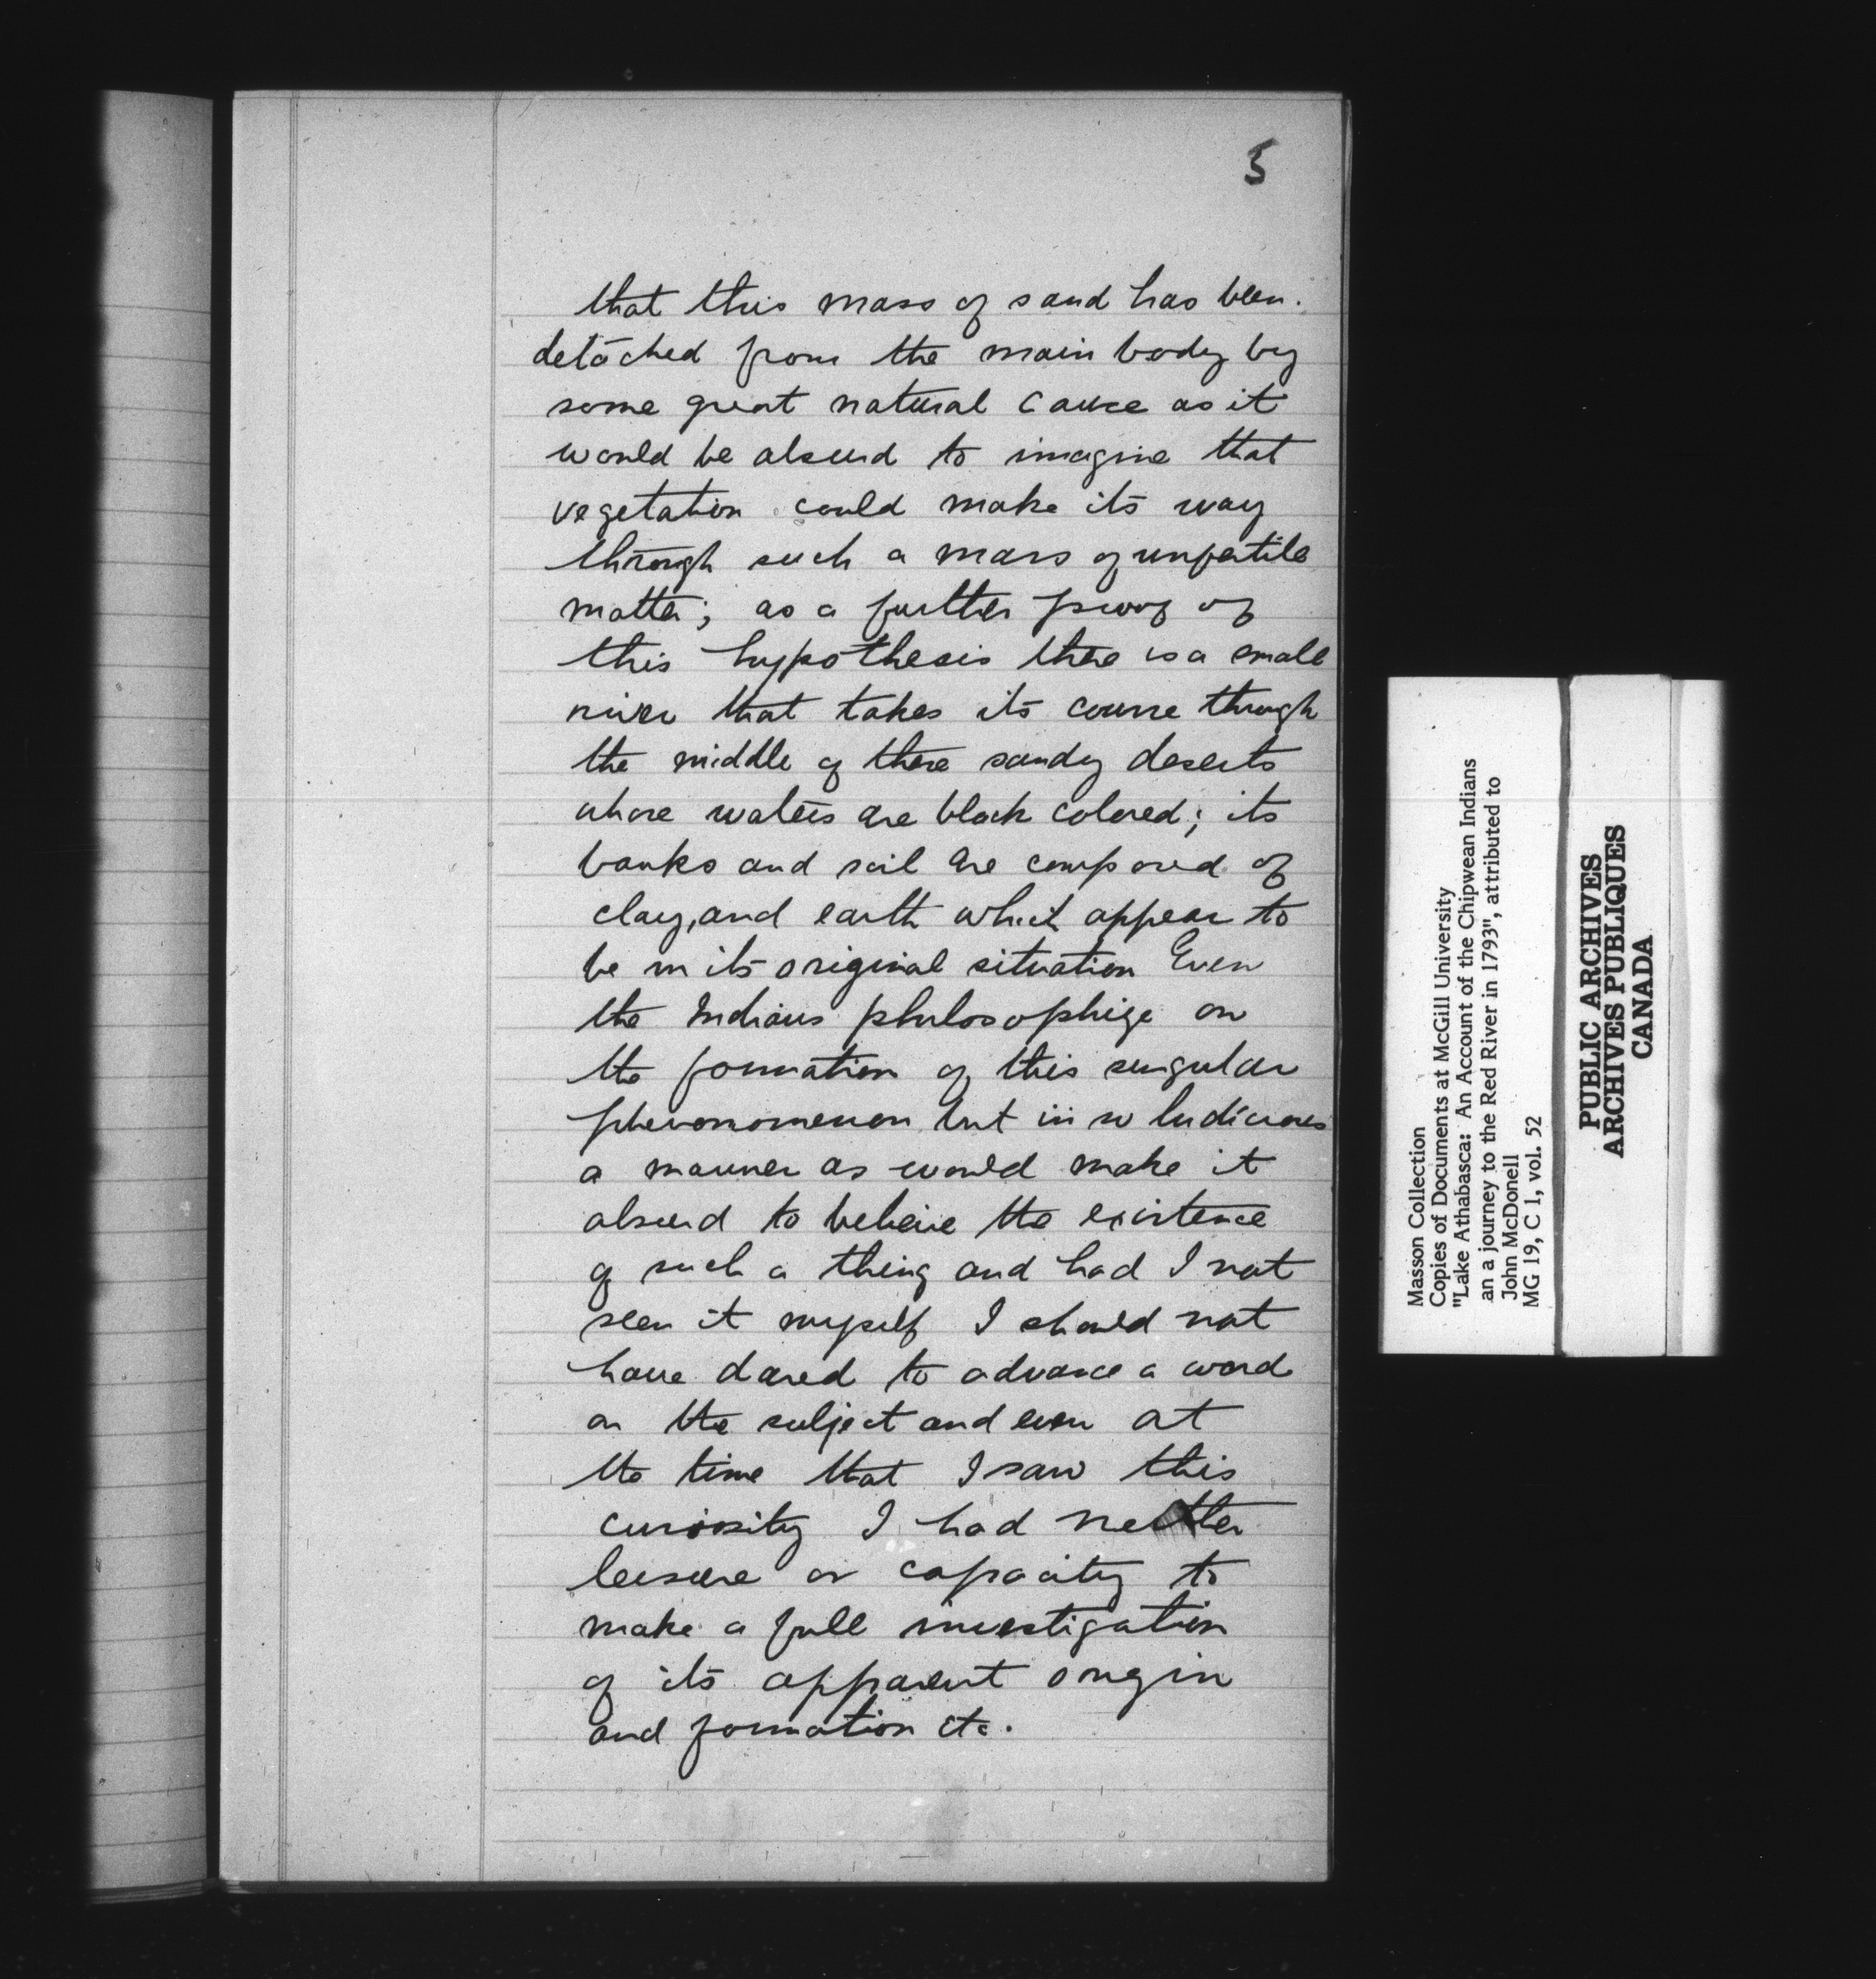 5
that this mass of sand has been.
detached from the main body by
some great natural cause as it
would be absurd to imagine that
vegetation could make its way
through such a mass of unfertile
matter; as a further proof of
this hypothesis there is a small
river that takes its course through
the middle of these sandy deserts
whose waters are black colored; its
banks and soil are composed of
clay, and earth which appear to
be in its original situation Even
the Indians philosophize on
the formation of this singular
phenonomenon but in so ludicrous
a manner as would make it
absurd to believe the existence
of such a thing and had I not
seen it myself I should not
have dared to advance a word
on the subject and even at
the time that I saw this
curiosity I had neither
leisure or capacity to
make a full investigation
of its apparent origin
and formation etc.
Masson Collection
Copies of Documents at McGill University
"Lake Athabasca: An Account of the Chipwean Indians
an a journey to the Red River in 1793", attributed to
John McDonell
MG 19, C 1, vol. 52
PUBLIC ARCHIVES
ARCHIVES PUBLIQUES
CANADA